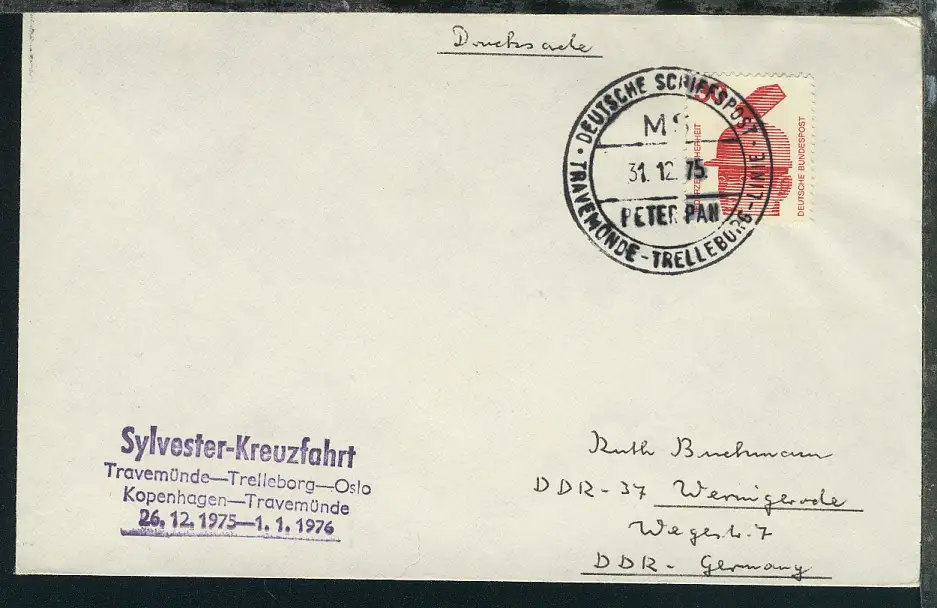 Drucksache
DEUTSCHE SCHIFFSPOST
MS
31.12.75
PETER PAN
TRAVEMÜNDE-TRELLEBORG-LINIE
DEUTSCHE BUNDESPOST
Sylvester-Kreuzfahrt
Travemünde—Trelleborg—Oslo
Kopenhagen—Travemünde
26.12.1975—1.1.1976
Ruth Buchmann
DDR-37 Wernigerode
Wegestr. 7
DDR - Germany